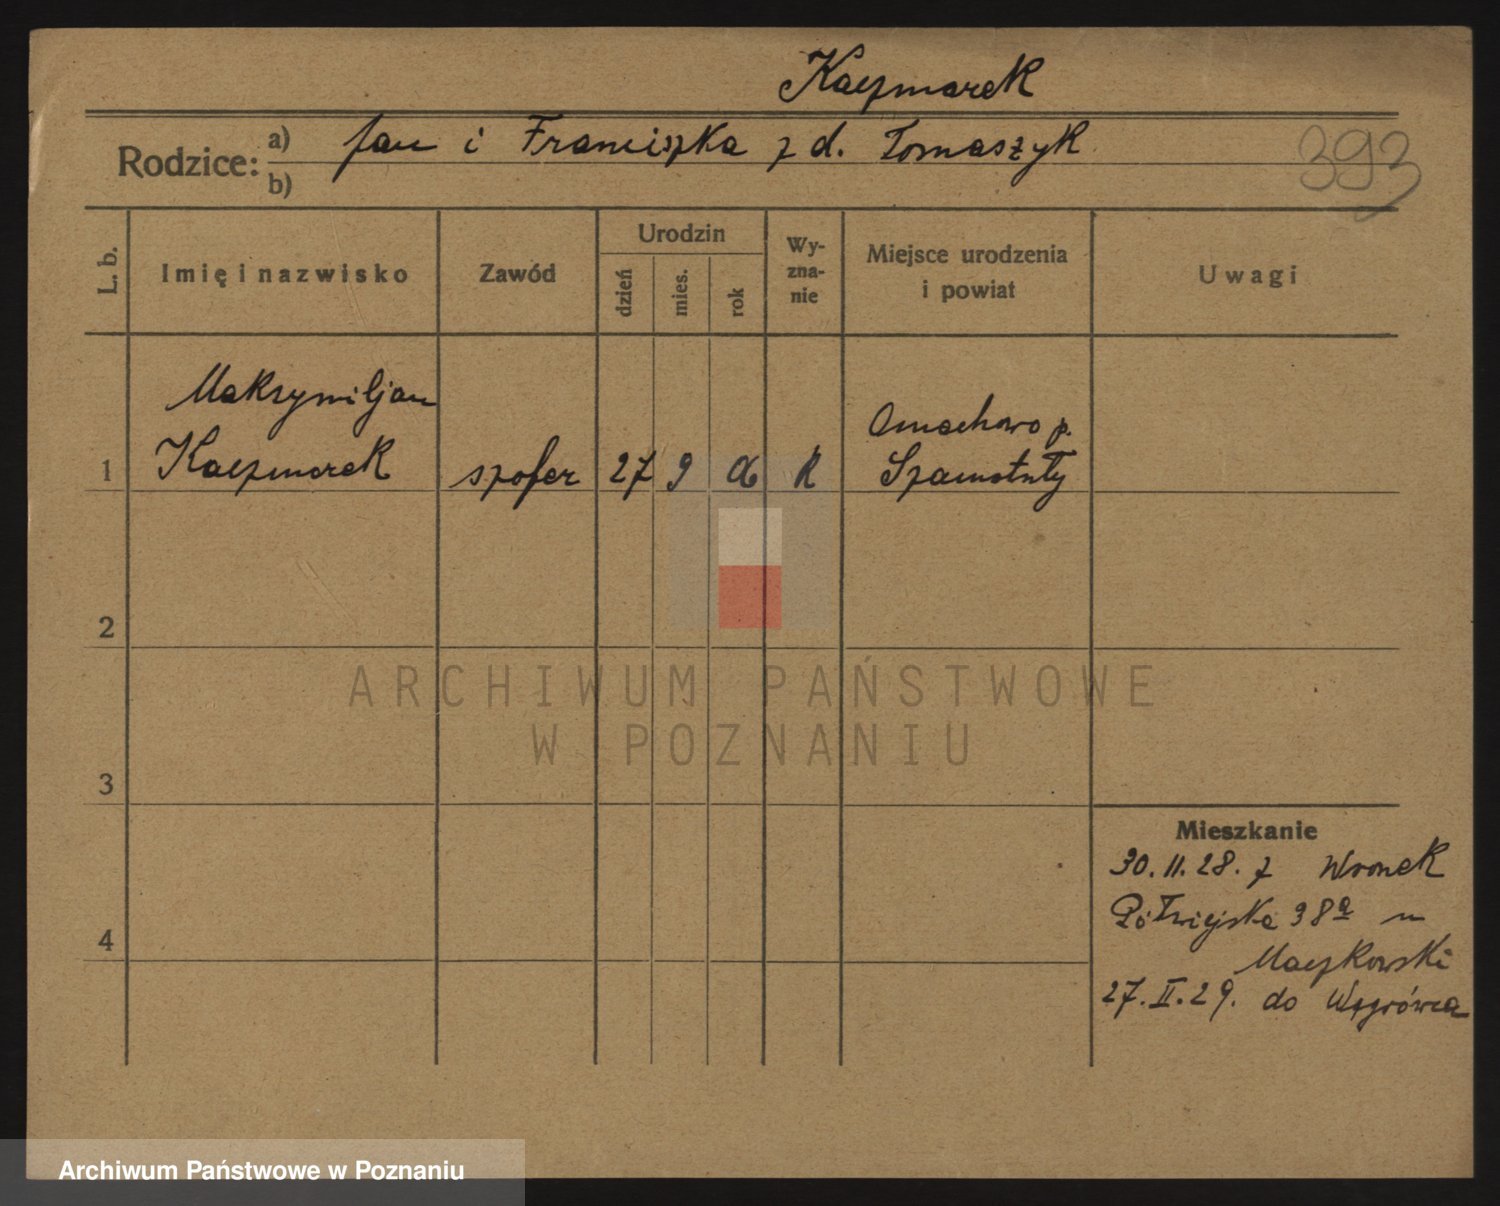 Kaczmarek
Rodzice: a) Jan i Franciszka z d. Tomaszyk
b)
393
L. b.
Imię i nazwisko
Zawód
Urodzin
dzień
mies.
rok
Wy-
zna-
nie
Miejsce urodzenia
i powiat
Uwagi
Maksymiljan
1 Kaczmarek szofer 27 9 R
Omachowo p.
Szamotuły
2
ARCHIWUM PAŃSTWOWE
W POZNANIU
3
4
Mieszkanie
30.11.28. z Wronek
Półwiejska 38a
Maczkowski
27.II.29. do Wągrówca
Archiwum Państwowe w Poznaniu